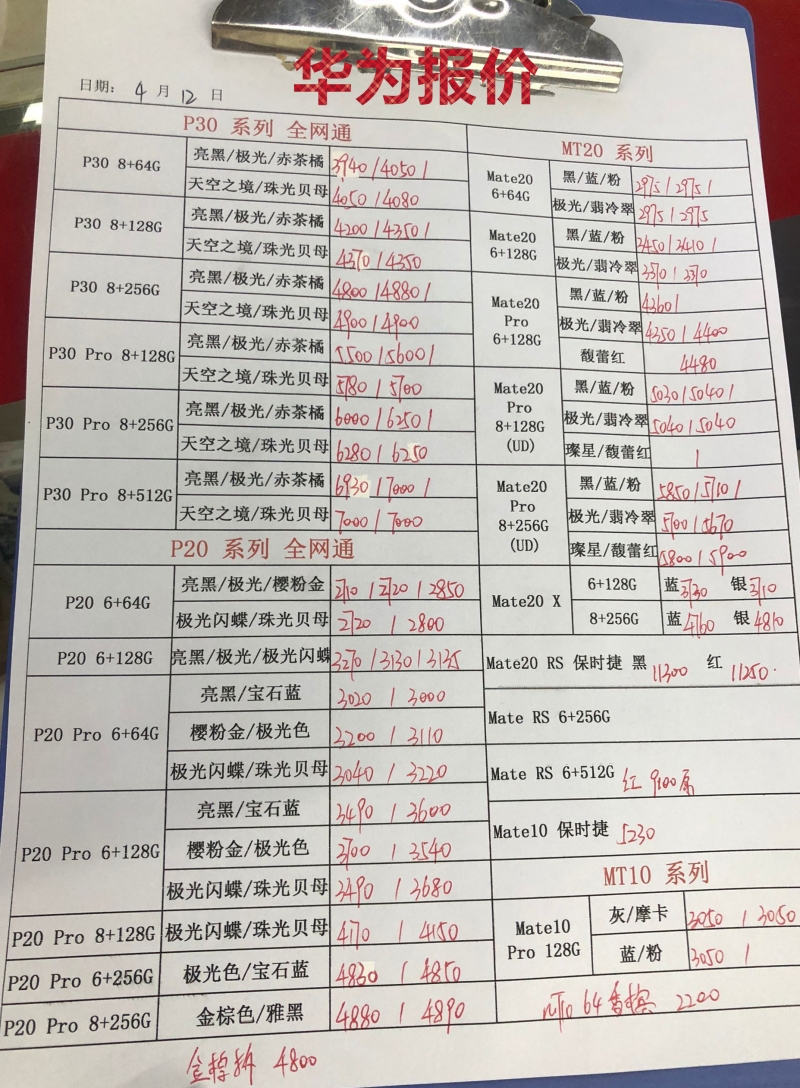 华为报价
日期: 4 月 12 日
P30 系列 全网通
P30 8+64G 亮黑/极光/赤茶橘 3940/4050/
天空之境/珠光贝母 4050/4080
P30 8+128G 亮黑/极光/赤茶橘 4200/4350/
天空之境/珠光贝母 4370/4350
P30 8+256G 亮黑/极光/赤茶橘 4800/4880/
天空之境/珠光贝母 4900/4900
P30 Pro 8+128G 亮黑/极光/赤茶橘 5500/5600/
天空之境/珠光贝母 5780/5700
P30 Pro 8+256G 亮黑/极光/赤茶橘 6000/6250/
天空之境/珠光贝母 6280/6250
P30 Pro 8+512G 亮黑/极光/赤茶橘 6930/7000/
天空之境/珠光贝母 7000/7000
P20 系列 全网通
P20 6+64G 亮黑/极光/樱粉金 2710/2720/2850
极光闪蝶/珠光贝母 2720/2800
P20 6+128G 亮黑/极光/极光闪蝶 3270/3130/3135
P20 Pro 6+64G 亮黑/宝石蓝 3020/3000
樱粉金/极光色 3200/3110
极光闪蝶/珠光贝母 3040/3220
P20 Pro 6+128G 亮黑/宝石蓝 3490/3600
樱粉金/极光色 3700/3540
极光闪蝶/珠光贝母 3490/3680
P20 Pro 8+128G 极光闪蝶/珠光贝母 4170/4150
P20 Pro 6+256G 极光色/宝石蓝 4830/4850
P20 Pro 8+256G 金棕色/雅黑 4880/4890
4800
MT20 系列
Mate20 6+64G 黑/蓝/粉 2975/2975/
极光/翡冷翠 2975/2975
Mate20 6+128G 黑/蓝/粉 3450/3410/
极光/翡冷翠 3370/3370
Mate20 Pro 6+128G 黑/蓝/粉 4360/
极光/翡冷翠 4350/4400
馥蕾红 4480
Mate20 Pro 8+128G (UD) 黑/蓝/粉 5030/5040/
极光/翡冷翠 5040/5040
璨星/馥蕾红 /
Mate20 Pro 8+256G (UD) 黑/蓝/粉 5850/5710/
极光/翡冷翠 5700/5670
璨星/馥蕾红 5800/5900
Mate20 X 6+128G 蓝3730 银3710
8+256G 蓝4760 银4810
Mate20 RS 保时捷 黑 11300 红 11250.
Mate RS 6+256G
Mate RS 6+512G 红 9100原
Mate10 保时捷 5230
MT10 系列
Mate10 Pro 128G 灰/摩卡 3050/3050
蓝/粉 3050/
64 香槟 2200